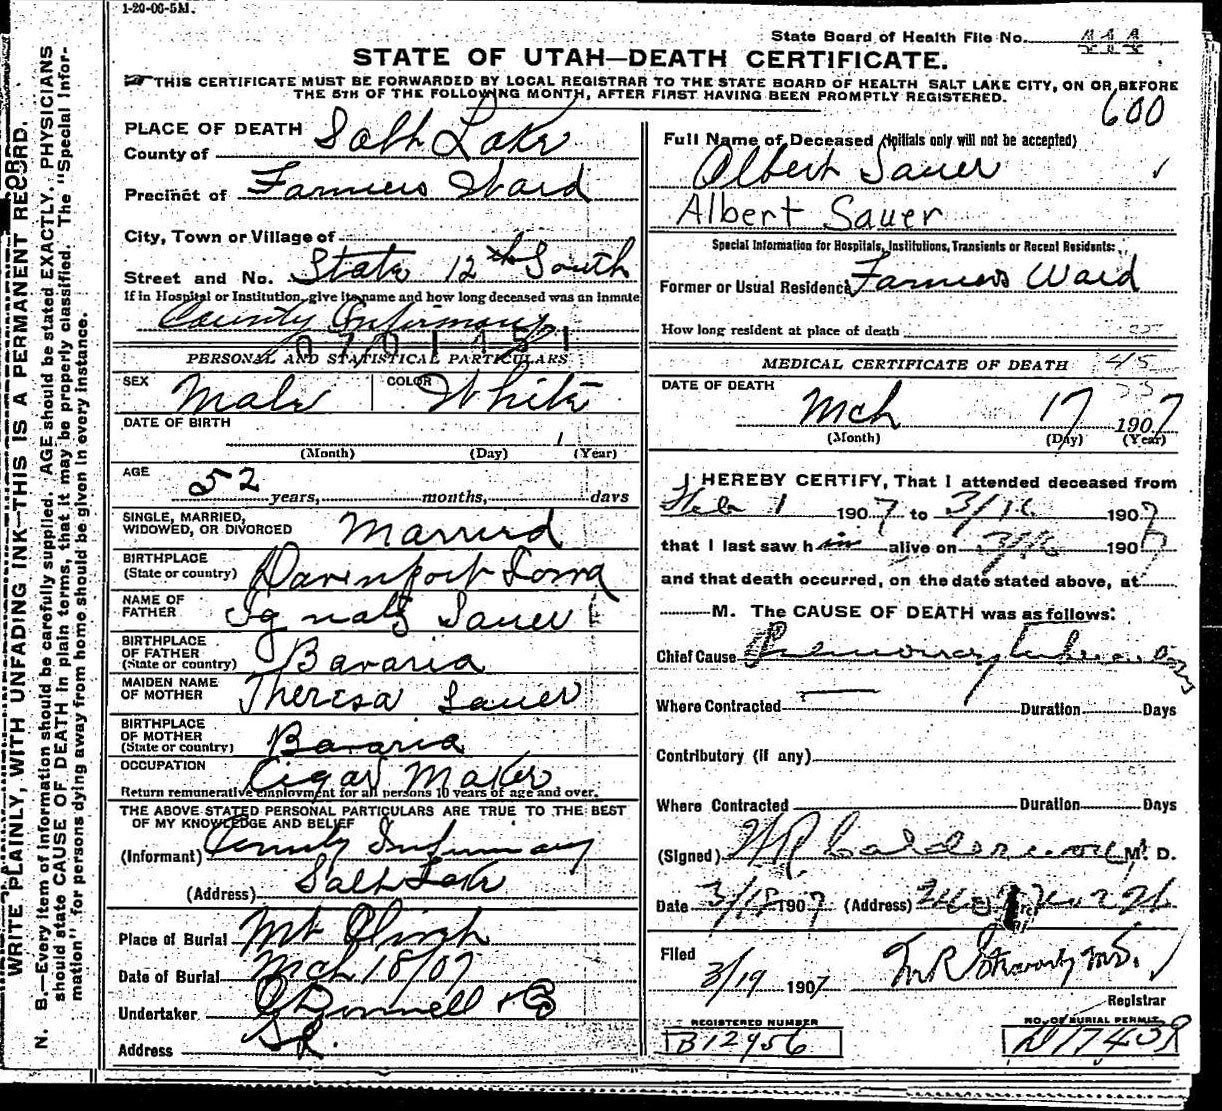 1-20-06-5M.
State Board of Health File No. 444
STATE OF UTAH—DEATH CERTIFICATE.
THIS CERTIFICATE MUST BE FORWARDED BY LOCAL REGISTRAR TO THE STATE BOARD OF HEALTH SALT LAKE CITY, ON OR BEFORE
THE 5TH OF THE FOLLOWING MONTH, AFTER FIRST HAVING BEEN PROMPTLY REGISTERED.
600
WRITE PLAINLY, WITH UNFADING INK—THIS IS A PERMANENT RECORD.
N. B.—Every item of information should be carefully supplied. AGE should be stated EXACTLY. PHYSICIANS
should state CAUSE OF DEATH in plain terms, that it may be properly classified. The "Special Infor-
mation" for persons dying away from home should be given in every instance.
PLACE OF DEATH
County of Salt Lake
Precinct of Farmers Ward
City, Town or Village of
Street and No. State 12th South
If in Hospital or Institution, give its name and how long deceased was an inmate
County Infirmary
PERSONAL AND STATISTICAL PARTICULARS
SEX Male COLOR White
DATE OF BIRTH
(Month) (Day) (Year)
AGE
52 years, months, days
SINGLE, MARRIED,
WIDOWED, OR DIVORCED Married
BIRTHPLACE
(State or country) Davenport Iowa
NAME OF
FATHER Ignatz Sauer
BIRTHPLACE
OF FATHER
(State or country) Bavaria
MAIDEN NAME
OF MOTHER Theresa Sauer
BIRTHPLACE
OF MOTHER
(State or country) Bavaria
OCCUPATION Cigar Maker
Return remunerative employment for all persons 10 years of age and over.
THE ABOVE STATED PERSONAL PARTICULARS ARE TRUE TO THE BEST
OF MY KNOWLEDGE AND BELIEF
(Informant) County Infirmary
(Address) Salt Lake
Place of Burial Mt Olivet
Date of Burial Mch 18/07
Undertaker O'Donnell & Co
Address SL
Full Name of Deceased (Initials only will not be accepted)
Albert Sauer
Albert Sauer
Special Information for Hospitals, Institutions, Transients or Recent Residents:
Former or Usual Residence Farmers Ward
How long resident at place of death
MEDICAL CERTIFICATE OF DEATH 45
DATE OF DEATH
Mch 17 1907
(Month) (Day) (Year)
I HEREBY CERTIFY, That I attended deceased from
Feb 1 1907 to 3/16 1907
that I last saw him alive on 3/16 1907
and that death occurred, on the date stated above, at
M. The CAUSE OF DEATH was as follows:
Chief Cause Pulmonary Tuberculosis
Where Contracted Duration Days
Contributory (if any)
Where Contracted Duration Days
(Signed) W R Calderwood M. D.
Date 3/18 1907 (Address)
Filed
3/19 1907
Registrar
REGISTERED NUMBER
B12956
NO. OF BURIAL PERMIT
D17439